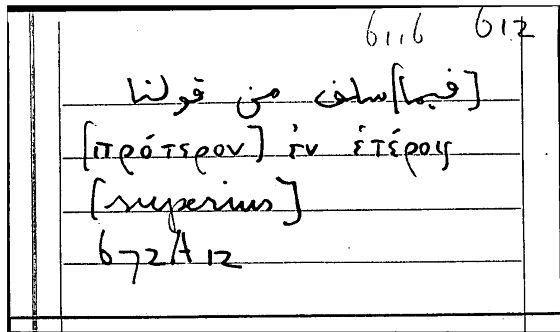 6116 612
[فيما] سلف من قولنا
[πρότερον] ἐν ἑτέροις
[superius]
672A12